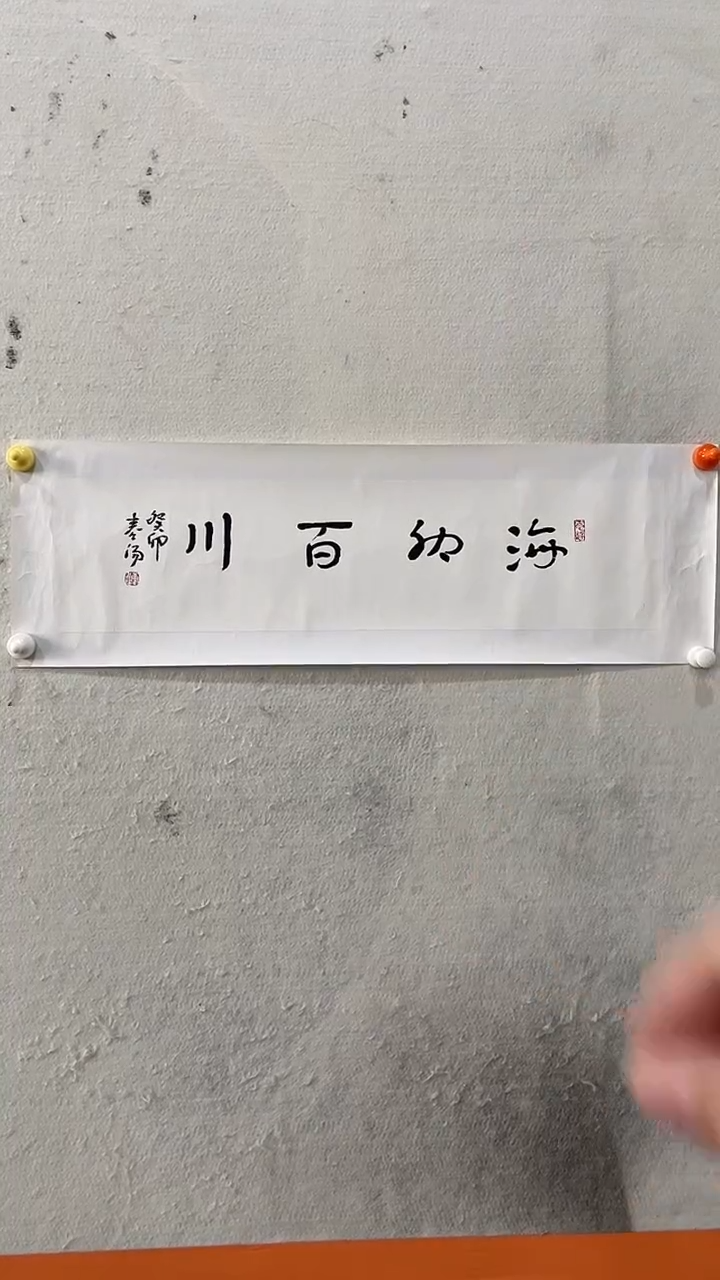 海纳百川
癸卯
春汤